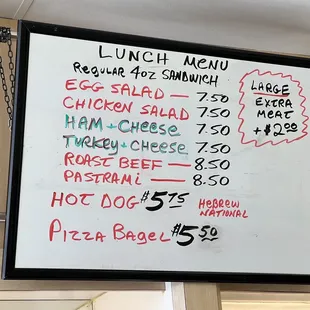 LUNCH MENU
REGULAR 4oz SANDWICH
EGG SALAD — 7.50
CHICKEN SALAD 7.50
HAM + CHEESE 7.50
TURKEY + CHEESE 7.50
ROAST BEEF — 8.50
PASTRAMI — 8.50
HOT DOG $5.75 HEBREW NATIONAL
PIZZA BAGEL $5.50
LARGE
EXTRA
MEAT
+ $2.00